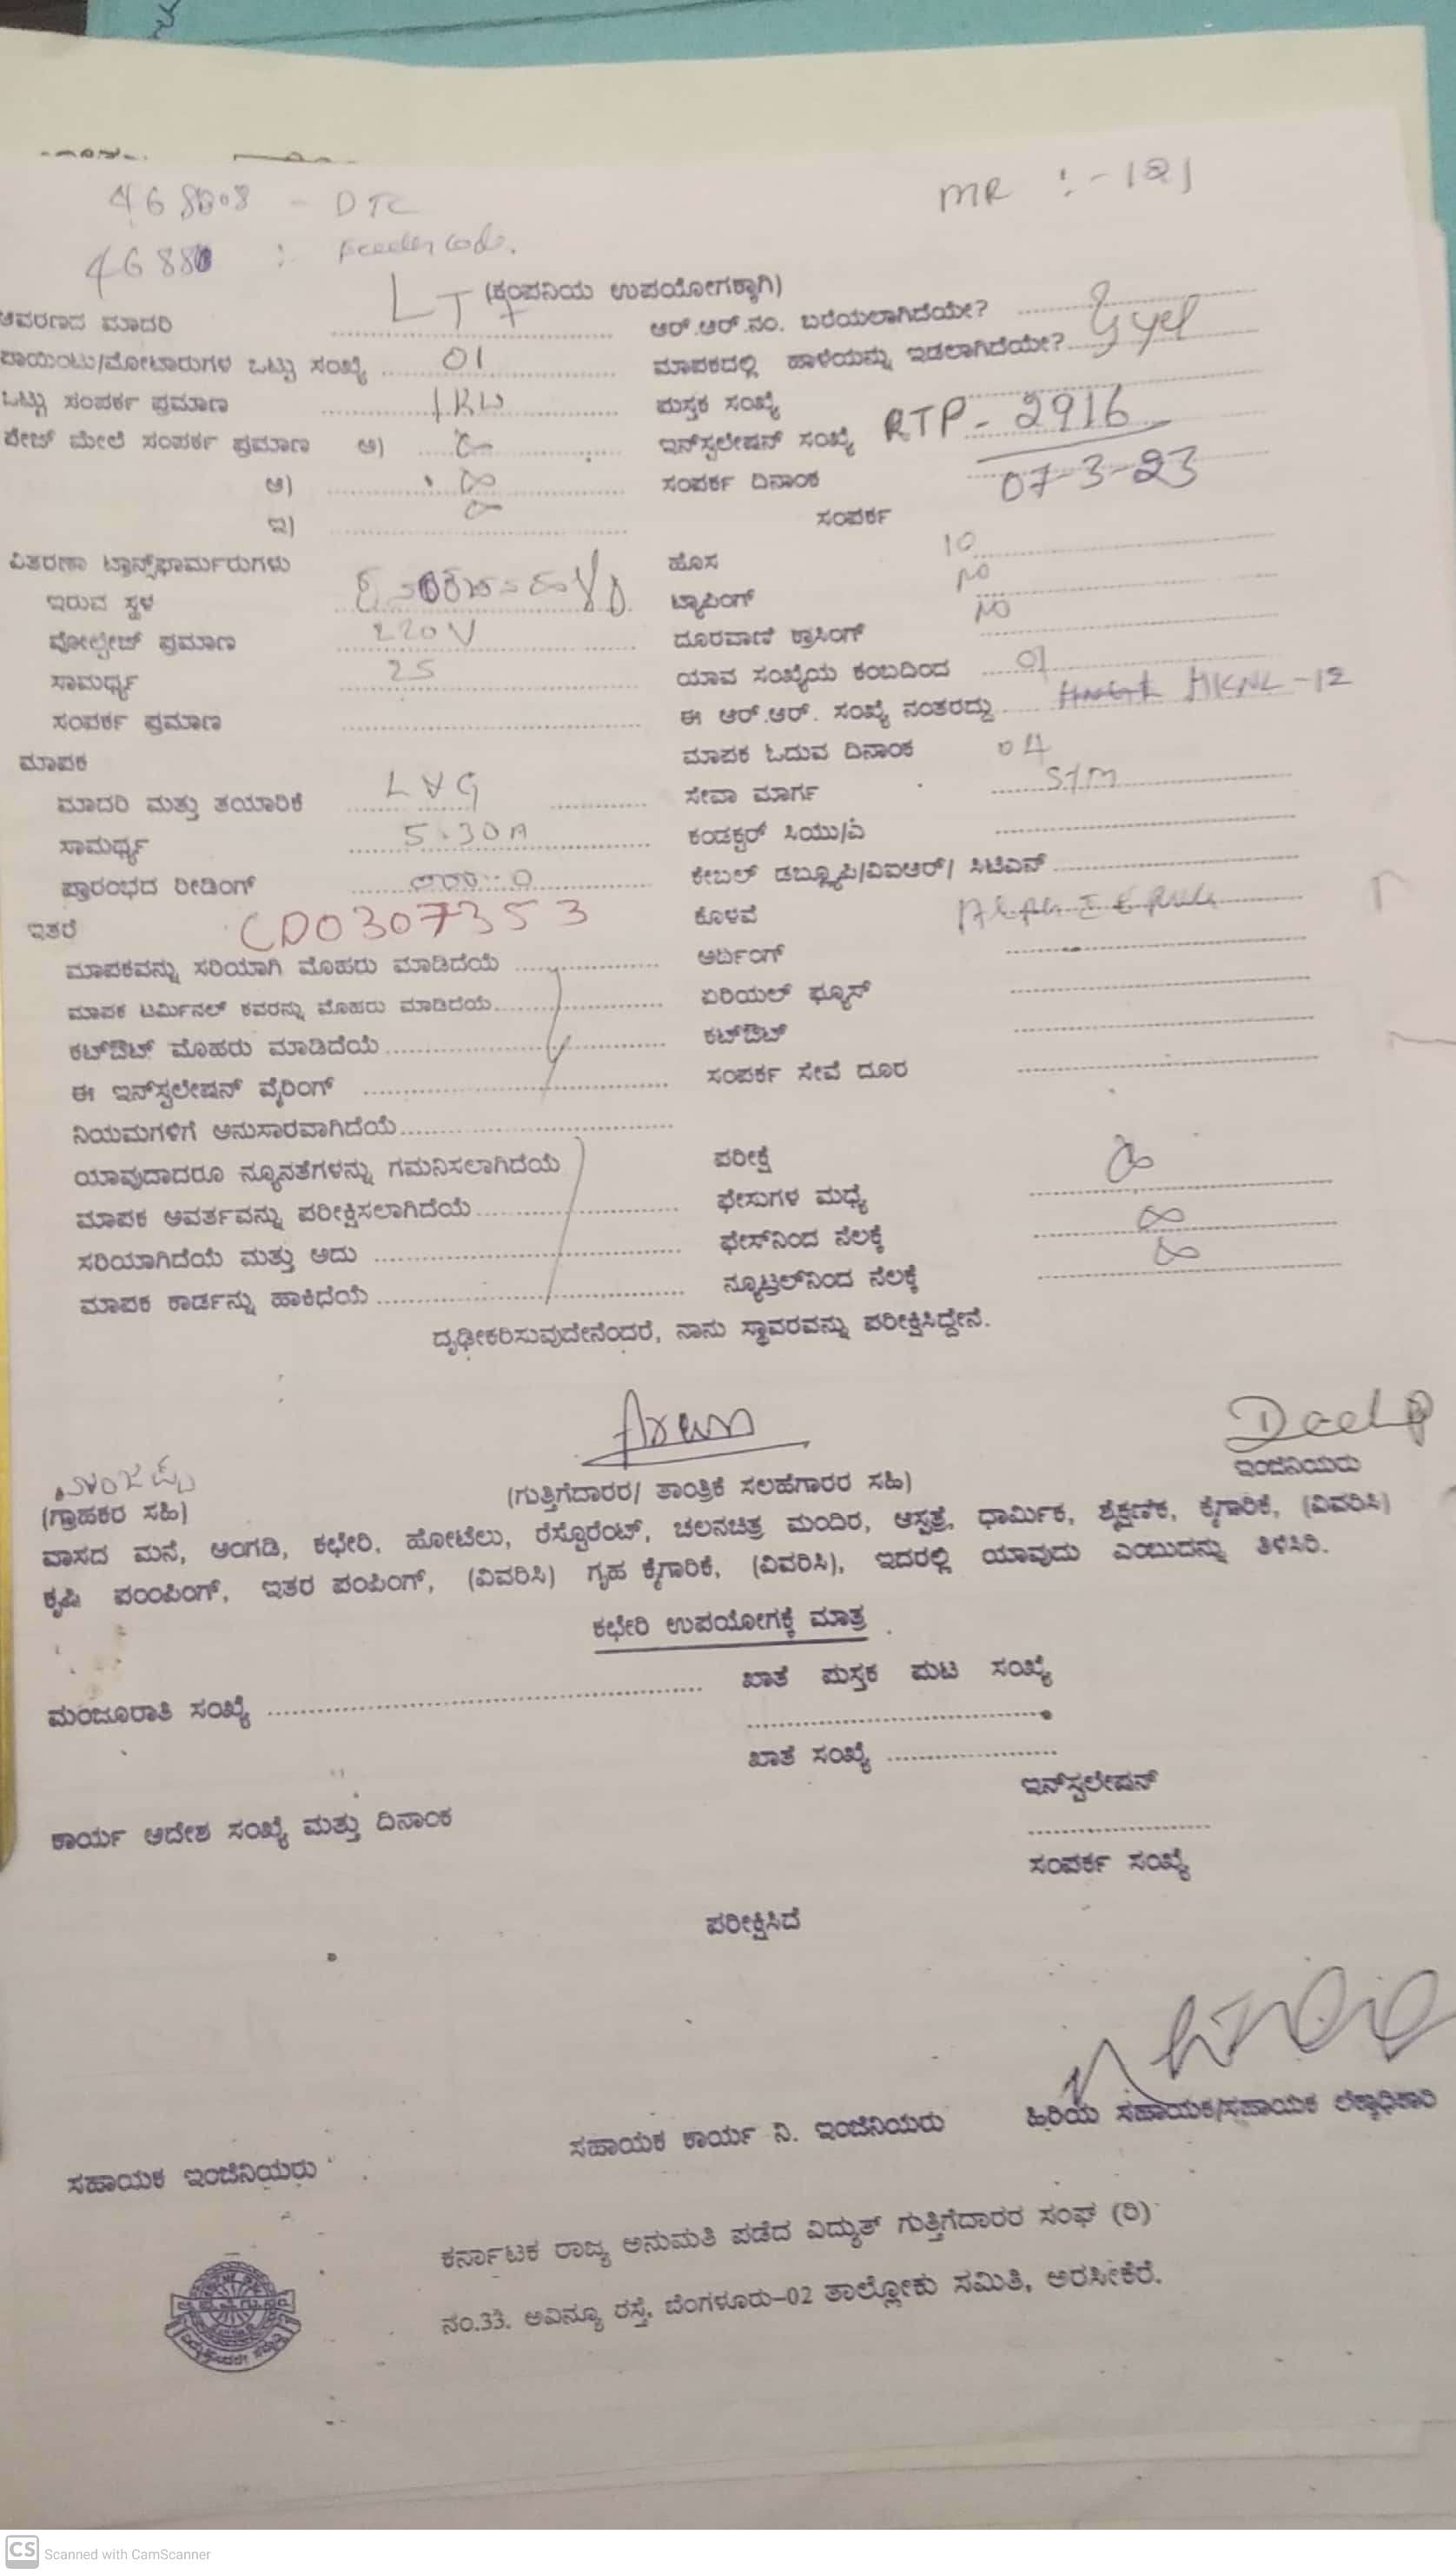 DTC
MR :- 121
: Feeder Code.
LT (ಕಂಪನಿಯ ಉಪಯೋಗಕ್ಕಾಗಿ)
ಆವರಣದ ಮಾದರಿ ಆರ್.ಆರ್.ನಂ. ಬರೆಯಲಾಗಿದೆಯೇ?
ಪಾಯಿಂಟು/ಮೋಟಾರುಗಳ ಒಟ್ಟು ಸಂಖ್ಯೆ 01 ಮಾಪಕದಲ್ಲಿ ಹಾಳೆಯನ್ನು ಇಡಲಾಗಿದೆಯೇ? yes
ಒಟ್ಟು ಸಂಪರ್ಕ ಪ್ರಮಾಣ 1KW ಪುಸ್ತಕ ಸಂಖ್ಯೆ
ಪೇಜ್ ಮೇಲೆ ಸಂಪರ್ಕ ಪ್ರಮಾಣ ಅ) ಇನ್‌ಸ್ಟಲೇಷನ್ ಸಂಖ್ಯೆ RTP - 2916
ಆ) ಸಂಪರ್ಕ ದಿನಾಂಕ 07-3-23
ಇ) ಸಂಪರ್ಕ
ವಿತರಣಾ ಟ್ರಾನ್ಸ್‌ಫಾರ್ಮರುಗಳು ಹೊಸ 10
ಇರುವ ಸ್ಥಳ ಟ್ಯಾಪಿಂಗ್ No
ವೋಲ್ಟೇಜ್ ಪ್ರಮಾಣ 220V ದೂರವಾಣಿ ಕ್ರಾಸಿಂಗ್ No
ಸಾಮರ್ಥ್ಯ 25 ಯಾವ ಸಂಖ್ಯೆಯ ಕಂಬದಿಂದ 01
ಸಂಪರ್ಕ ಪ್ರಮಾಣ ಈ ಆರ್.ಆರ್. ಸಂಖ್ಯೆ ನಂತರದ್ದು HKNL -12
ಮಾಪಕ ಮಾಪಕ ಓದುವ ದಿನಾಂಕ 04
ಮಾದರಿ ಮತ್ತು ತಯಾರಿಕೆ L&G ಸೇವಾ ಮಾರ್ಗ S/M
ಸಾಮರ್ಥ್ಯ 5-30A ಕಂಡಕ್ಟರ್ ಸಿಯು/ಎ
ಪ್ರಾರಂಭದ ರೀಡಿಂಗ್ ಕೇಬಲ್ ಡಬ್ಲ್ಯೂಪಿ/ವಿಐಆರ್/ ಸಿಟಿಎಸ್
ಇತರೆ CD0307353 ಕೊಳವೆ
ಮಾಪಕವನ್ನು ಸರಿಯಾಗಿ ಮೊಹರು ಮಾಡಿದೆಯೆ ಅರ್ಥಿಂಗ್
ಮಾಪಕ ಟರ್ಮಿನಲ್ ಕವರನ್ನು ಮೊಹರು ಮಾಡಿದೆಯೆ ಏರಿಯಲ್ ಫ್ಯೂಸ್
ಕಟ್‌ಔಟ್ ಮೊಹರು ಮಾಡಿದೆಯೆ ಕಟ್‌ಔಟ್
ಈ ಇನ್‌ಸ್ಟಲೇಷನ್ ವೈರಿಂಗ್ ಸಂಪರ್ಕ ಸೇವೆ ದೂರ
ನಿಯಮಗಳಿಗೆ ಅನುಸಾರವಾಗಿದೆಯೆ
ಯಾವುದಾದರೂ ನ್ಯೂನತೆಗಳನ್ನು ಗಮನಿಸಲಾಗಿದೆಯೆ ಪರೀಕ್ಷೆ
ಮಾಪಕ ಆವರ್ತವನ್ನು ಪರೀಕ್ಷಿಸಲಾಗಿದೆಯೆ ಫೇಸುಗಳ ಮಧ್ಯೆ
ಸರಿಯಾಗಿದೆಯೆ ಮತ್ತು ಅದು ಫೇಸ್‌ನಿಂದ ನೆಲಕ್ಕೆ
ಮಾಪಕ ಕಾರ್ಡನ್ನು ಹಾಕಿದೆಯೆ ನ್ಯೂಟ್ರಲ್‌ನಿಂದ ನೆಲಕ್ಕೆ
ದೃಢೀಕರಿಸುವುದೇನೆಂದರೆ, ನಾನು ಸ್ಥಾವರವನ್ನು ಪರೀಕ್ಷಿಸಿದ್ದೇನೆ.
ಇಂಜಿನಿಯರು
(ಗ್ರಾಹಕರ ಸಹಿ) (ಗುತ್ತಿಗೆದಾರರ/ ತಾಂತ್ರಿಕೆ ಸಲಹೆಗಾರರ ಸಹಿ)
ವಾಸದ ಮನೆ, ಅಂಗಡಿ, ಕಛೇರಿ, ಹೋಟೆಲು, ರೆಸ್ಟೊರೆಂಟ್, ಚಲನಚಿತ್ರ ಮಂದಿರ, ಆಸ್ಪತ್ರೆ, ಧಾರ್ಮಿಕ, ಶೈಕ್ಷಣಿಕ, ಕೈಗಾರಿಕೆ, (ವಿವರಿಸಿ)
ಕೃಷಿ ಪಂಂಪಿಂಗ್, ಇತರ ಪಂಪಿಂಗ್, (ವಿವರಿಸಿ) ಗೃಹ ಕೈಗಾರಿಕೆ, (ವಿವರಿಸಿ), ಇದರಲ್ಲಿ ಯಾವುದು ಎಂಬುದನ್ನು ತಿಳಿಸಿರಿ.
ಕಛೇರಿ ಉಪಯೋಗಕ್ಕೆ ಮಾತ್ರ
ಮಂಜೂರಾತಿ ಸಂಖ್ಯೆ ಖಾತೆ ಪುಸ್ತಕ ಪುಟ ಸಂಖ್ಯೆ
ಖಾತೆ ಸಂಖ್ಯೆ
ಇನ್‌ಸ್ಟಲೇಷನ್
ಕಾರ್ಯ ಆದೇಶ ಸಂಖ್ಯೆ ಮತ್ತು ದಿನಾಂಕ
ಸಂಪರ್ಕ ಸಂಖ್ಯೆ
ಪರೀಕ್ಷಿಸಿದೆ
ಸಹಾಯಕ ಇಂಜಿನಿಯರು ಸಹಾಯಕ ಕಾರ್ಯ ನಿ. ಇಂಜಿನಿಯರು ಹಿರಿಯ ಸಹಾಯಕ/ಸಹಾಯಕ ಲೆಕ್ಕಾಧಿಕಾರಿ
ಕರ್ನಾಟಕ ರಾಜ್ಯ ಅನುಮತಿ ಪಡೆದ ವಿದ್ಯುತ್ ಗುತ್ತಿಗೆದಾರರ ಸಂಘ (ರಿ)
ನಂ.33. ಅವಿನ್ಯೂ ರಸ್ತೆ, ಬೆಂಗಳೂರು-02 ತಾಲ್ಲೋಕು ಸಮಿತಿ, ಅರಸೀಕೆರೆ.
CS Scanned with CamScanner